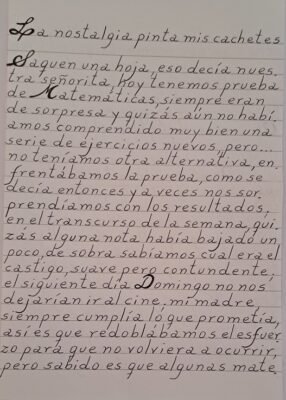 La nostalgia pinta mis cachetes
Saquen una hoja, eso decía nues
tra señorita, hoy tenemos prueba
de Matemáticas, siempre eran
de sorpresa y quizás aún no habí
amos comprendido muy bien una
serie de ejercicios nuevos, pero...
no teníamos otra alternativa, en.
frentábamos la prueba, como se
decía entonces y a veces nos sor.
prendíamos con los resultados,
en el transcurso de la semana, qui
zás alguna nota había bajado un
poco, de sobra sabíamos cual era el
castigo, suave pero contundente,
el siguiente día Domingo no nos
dejarían ir al cine, mi madre,
siempre cumplía lo que prometía,
así es que redoblábamos el esfuer
zo para que no volviera a ocurrir,
pero sabido es que algunas mate.